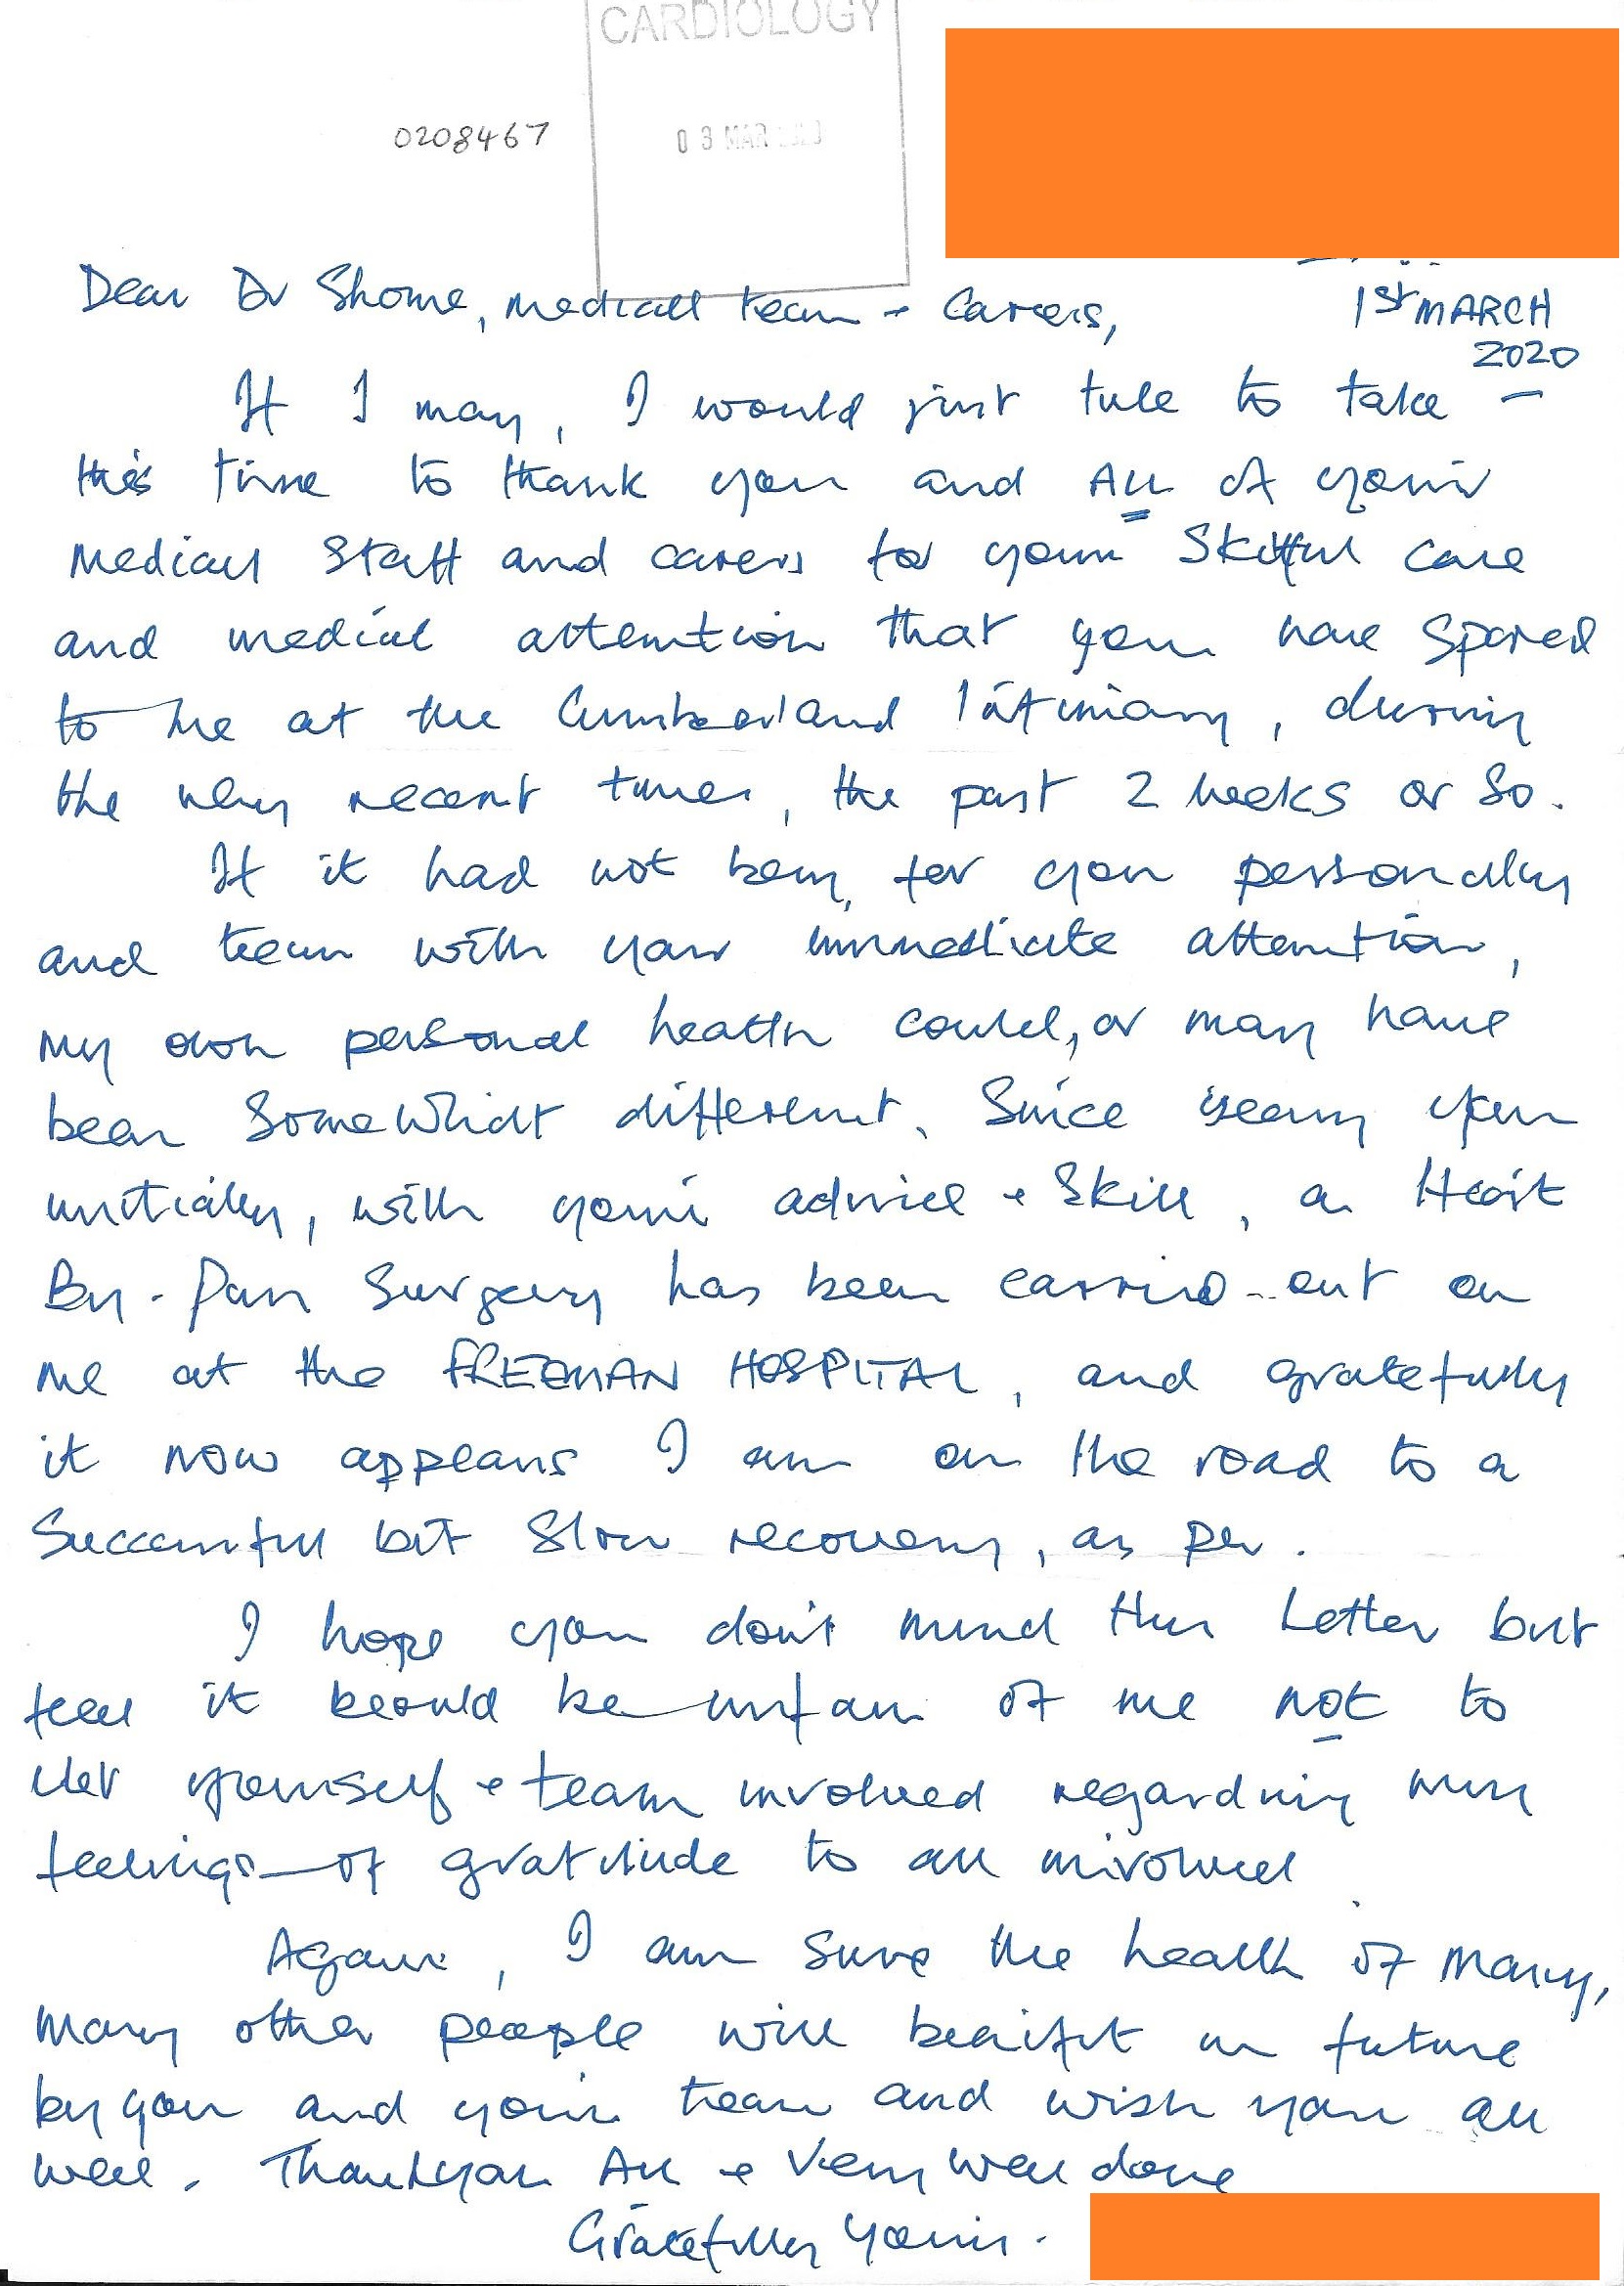 CARDIOLOGY
0208467
03 MAR
Dear Dr Shome, medicall team + Carers,
1st MARCH
2020
If I may, I would just like to take
this time to thank you and ALL of your
Medical Staff and carers for your Skilful care
and medical attention that you have spared
to me at the Cumberland Infirmary, during
the very recent times, the past 2 weeks or so.
If it had not been, for you personally
and team with your immediate attention,
my own personal health could, or may have
been somewhat different. Since seeing you
initially, with your advice + skill, a Heart
By-Pass Surgery has been carried out on
me at the FREEMAN HOSPITAL, and gratefully
it now appears I am on the road to a
Successful but slow recovery, as per.
I hope you don't mind this Letter but
feel it would be unfair of me not to
let yourself + team involved regarding my
feelings of gratitude to all involved.
Again, I am sure the health of many,
many other people will benifit in future
by you and your team and wish you all
well. Thankyou All + very well done
Gratefully Yours.